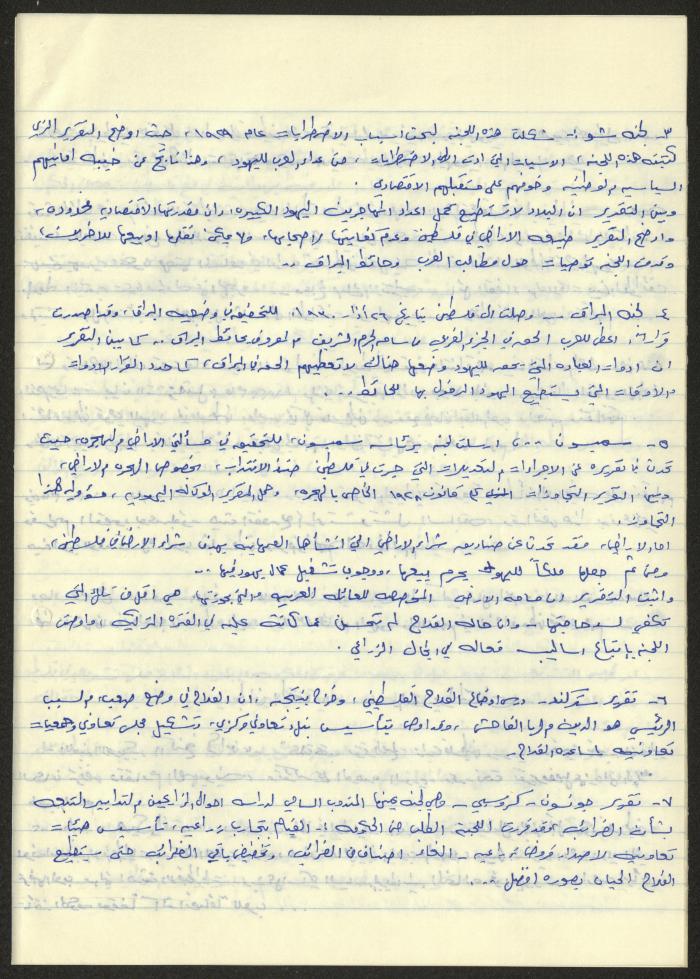 ٣- لجنه شو :- شكلت هذه اللجنه لبحث اسباب الاضطرابات عام ١٩٢٩، حيث اوضح التقرير الذي
كتبته هذه اللجنه، الاسباب التي ادت الى الاضطرابات، من عداء العرب لليهود، وهذا ناتج عن خيبه امانيهم
السياسيه والوطنيه وخوفهم على مستقبلهم الاقتصادي.
وبين التقرير ان البلاد لا تستطيع تحمل اعداد المهاجرين اليهود الكبيره، وان مقدرتها الاقتصاديه محدوده،
واوضح التقرير طبيعه الاراضي في فلسطين وعدم كفايتها لاصحابها، ولا يمكن نقلها او بيعها للاخرين،
وقدمت اللجنه توصيات حول مطالب العرب وحائط البراق ..
٤- لجنه البراق .. وصلت الى فلسطين بتاريخ ٢٦ اذار للتحقيق في وضعيه البراق، وقد اصدرت
قرارا اعطى للعرب الحق في الجزء الغربي من ساحه الحرم الشريف والمعروف بحائط البراق .. كما بين التقرير
ان ادوات العباده التي يحق لليهود وضعها هناك لا تعطيهم الحق في البراق، كما حدد القرار الادوات
والاوقات التي يستطيع اليهود الدخول بها للحائط ...
٥- سمبسون ... ارسلت لجنه برئاسه سمبسون، للتحقيق في مسألتي الاراضي والهجره، حيث
تحدث في تقريره عن الاجراءات والتعديلات التي جرت في فلسطين، منذ الانتداب، بخصوص الهجره والاراضي،
وبين التقرير التجاوزات في قانون ١٩٢٨ الخاص بالهجره، وحمل التقرير الوكاله اليهوديه، مسؤوليه هذا
التجاوز.
اما الاراضي، فقد تحدث عن صناديق شراء الاراضي التي انشأها الصهاينه بهدف شراء الاراضي في فلسطين،
ومن ثم جعلها ملكاً لليهود يحرم بيعها، ووجوب تشغيل عمال يهود فيها ..
واثبت التقرير ان مساحه الارض المخصصه للعائله العربيه والتي بحوزتها، هي اقل من تلك التي
تكفي لسد حاجتها - وان حاله الفلاح لم تتحسن عما كانت عليه في الفتره التركيه، واوصت
اللجنه باتباع اساليب فعاله في المجال الزراعي.
٦- تقرير ستركلاند - درس اوضاع الفلاح الفلسطيني، وخرج بنتيجه، ان الفلاح في وضع صعب، والسبب
الرئيسي هو الدين والربا الفاحش، وقد اوصى بتأسيس بنك تعاوني مركزي، وتشكيل مجلس تعاوني وجمعيات
تعاونيه لمساعده الفلاح.
٧- تقرير جونسون - كروسبي - وهي لجنه عينها المندوب السامي لدراسه احوال المزارعين والتدابير المتبعه
بشأن الضرائب، وقد قررت اللجنه الطلب من الحكومه :- القيام بتجارب زراعيه، تأسيس هيئات
تعاونيه لاصدار قروض زراعيه - الغاء اصناف من الضرائب، وتخفيض باقي الضرائب حتى يستطيع
الفلاح الحياه بصوره افضل ...